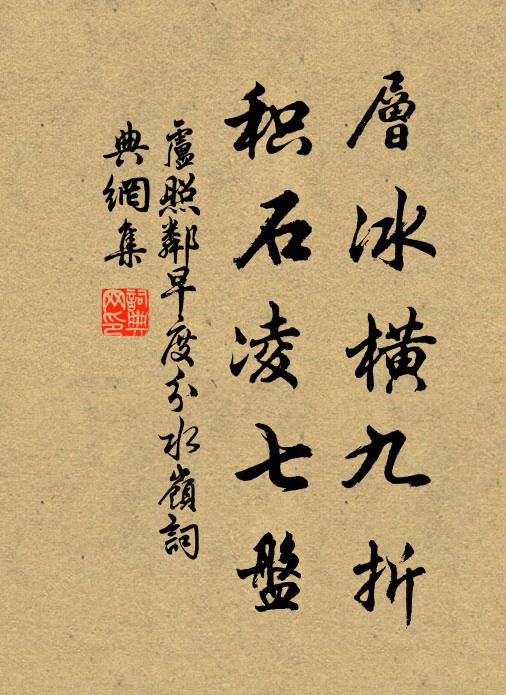 層冰橫九折
积石凌七盤
盧照鄰早度分水嶺詞
典網集
詞典網印